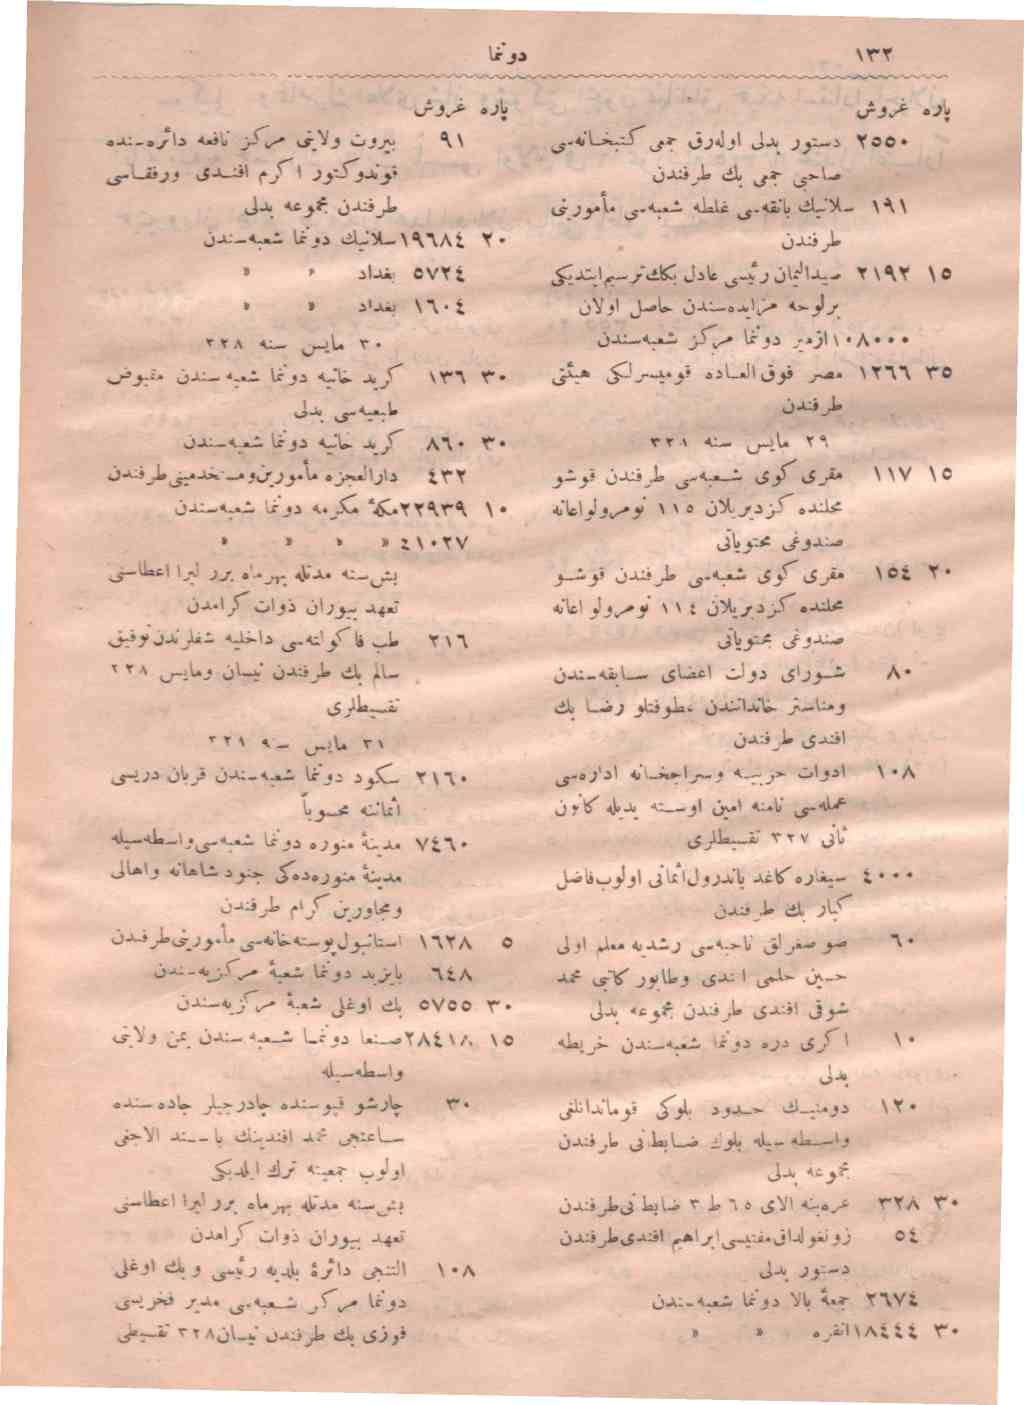 ١٣٢
دونما
پاره غروش
٢٥٥٠ دستور بدلی اوله‌رق جمعی كتبخانه‌سی
صاحبی جمعی بك طرفندن
١٩١ سلانیك بانقه‌سی غلطه شعبه‌سی مأمورینی
طرفندن
١٥ ٢١٩٢ صیدالیمان رئیسی عادل بكك ترسیم ایتدیكی
برلوحه مزایده‌سندن حاصل اولان
١٠٨٠٠٠ ازمیر دونما مركز شعبه‌سندن
٣٥ ١٢٦٦ مصر فوق‌العاده قومیسرلكی هیئتی
طرفندن
٢٩ مایس سنه ٣٢٨
١٥ ١١٧ مقری كوی شعبه‌سی طرفندن قوشو
محلنده كزدیریلان ١١٥ نومرولو اعانه
صندوغی محتویاتی
٢٠ ١٥٤ مقری كوی شعبه‌سی طرفندن قوشو
محلنده كزدیریلان ١١٤ نومرولو اعانه
صندوغی محتویاتی
٨٠ شورای دولت اعضای سابقه‌سندن
ومناستر خاندانندن عطوفتلو رضا بك
افندی طرفندن
١٠٨ ادوات حربیه وسراجخانه اداره‌سی
عمله‌سی نامنه امین اوسته یدیله كانون
ثانی ٣٢٧ تقسیطلری
٤٠٠٠ سیغاره كاغد باندرول اثمانی اولوب فاضل
كبار بك طرفندن
٦٠ صو صغرلق ناحیه‌سی رشدیه معلم اولی
حسین حلمی افندی وطابور كاتبی محمد
شوقی افندی طرفندن مجموعه بدلی
١٠ اكری دره دونما شعبه‌سندن خریطه
بدلی
١٢٠ دومنیك حدود بلوكی قوماندانلغی
واسطه‌سیله بلوك ضابطانی طرفندن
مجموعه بدلی
٣٠ ٣٢٨ عزمینه الای ٦٥ ط ٣ ضابطانی طرفندن
٥٤ زونغولداق مفتیسی ابراهیم افندی طرفندن
دستور بدلی
٢٦٧٤ جمعهٔ بالا دونما شعبه‌سندن
٣٠ ١٨٤٤٤ انقره » »
پاره غروش
٩١ بیروت ولایتی مركز نافعه دائره‌سنده
قوندوكتور اكرم افندی ورفقاسی
طرفندن مجموعه بدلی
٢٠ ١٩٦٨٤ سلانیك دونما شعبه‌سندن
٥٧٢٤ بغداد » »
١٦٠٤ بغداد » »
٣٠ مایس سنه ٣٢٨
٣٠ ١٣٦ كرید خانیه دونما شعبه‌سندن مقبوض
طبعیه‌سی بدلی
٣٠ ٨٦٠ كرید خانیه دونما شعبه‌سندن
٤٣٢ دارالعجزه مأمورین ومستخدمینی طرفندن
١٠ ٢٢٩٣٩ مكهٔ مكرمه دونما شعبه‌سندن
٤١٠٢٧ » » » »
بش سنه مدتله بهرماه برر لیرا اعطاسنی
تعهد بیوران ذوات كرامدن
٢١٦ طب فاكولته‌سی داخلیه شفلرندن توفیق
سالم بك طرفندن نیسان ومایس ٣٢٨
تقسیطلری
٣١ مایس سنه ٣٢٨
٢١٦٠ سكود دونما شعبه‌سندن قربان دریسی
اثماننه محسوباً
٧٤٦٠ مدینهٔ منوره دونما شعبه‌سی واسطه‌سیله
مدینهٔ منوره‌ده‌كی جنود شاهانه واهالی
ومجاورین كرام طرفندن
٥ ١٦٢٨ استانبول پوسته‌خانه‌سی مأمورینی طرفندن
٦٤٨ بایزید دونما شعبهٔ مركزیه‌سندن
٣٠ ٥٧٥٥ بك اوغلی شعبهٔ مركزیه‌سندن
١٥ ٢٨٤١٨ صنعا دونما شعبه‌سندن یمن ولایتی
واسطه‌سیله
٣٠ چارشو قپوسنده چادرجیلر جاده‌سنده
ساعتجی محمد افندینك الاجغی
اولوب جمعیته ترك ایلدیكی
بش سنه مدتله بهرماه برر لیرا اعطاسنی
تعهد بیوران ذوات كرامدن
١٠٨ التنجی دائرهٔ بلدیه رئیسی وبك اوغلی
دونما مركز شعبه‌سی مدیر فخریسی
فوزی بك طرفندن نیسان ٣٢٨ تقسیطی